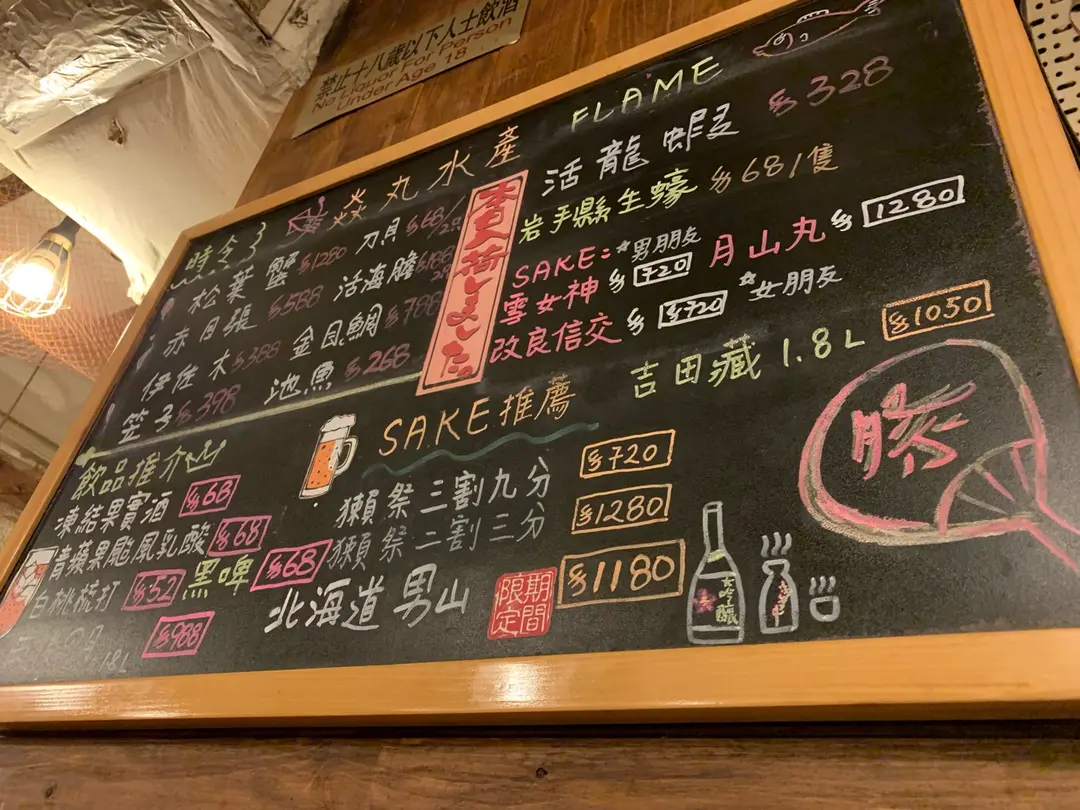 禁止十八歲以下人士飲酒
No Liquor For Person
Under Age 18
焱丸水產 FLAME
時令
松葉蟹 $1280 刀貝 $68/2只
赤目張 $588 活海膽
伊佐木 $388 金目鯛 $788
笠子 $398 池魚 $268
本日入荷しました。
活龍蝦 $328
岩手縣生蠔 $68/隻
SAKE: *男朋友
雪女神 $720 月山丸 $1280
改良信交 $720 *女朋友
吉田藏 1.8L $1050
飲品推介
凍結果實酒 $68
青蘋果颱風乳酸 $68
白桃梳打 $52 黑啤 $68
$988
1.8L
SAKE推薦
獺祭三割九分 $720
獺祭二割三分 $1280
北海道男山 期間限定 $1180
勝
大吟釀